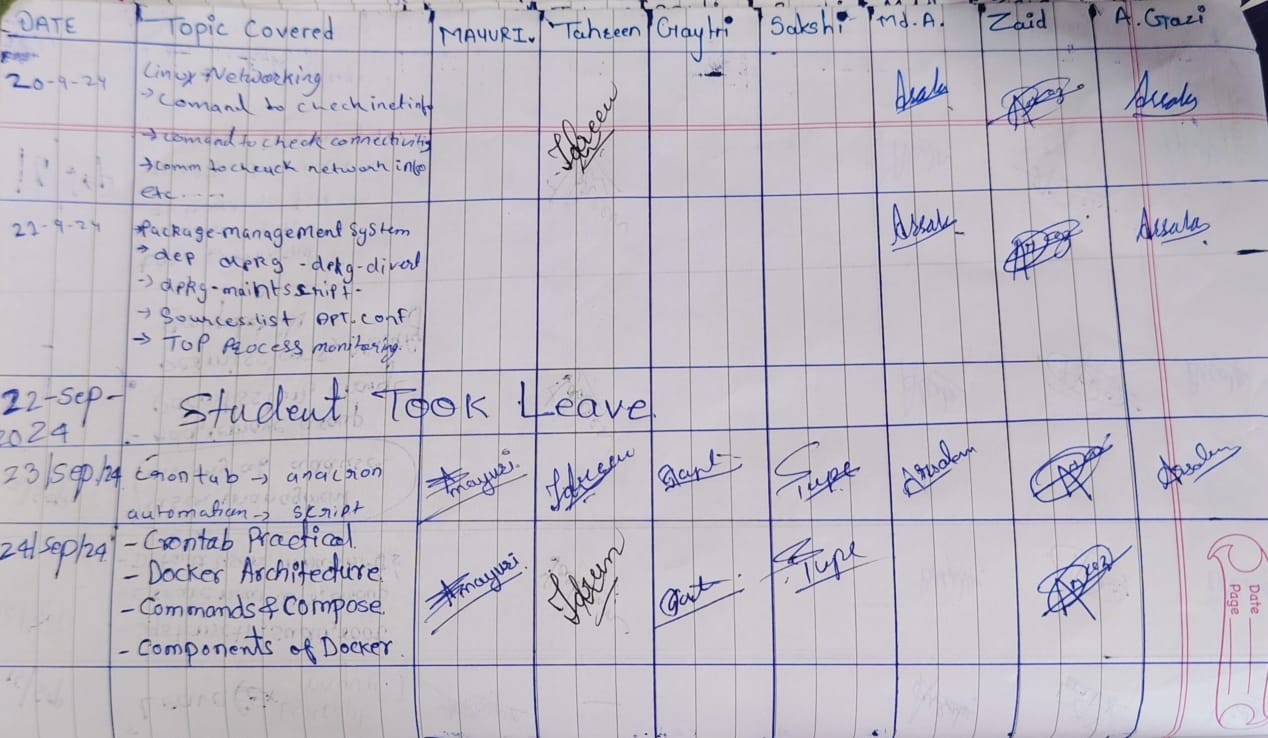 DATE Topic Covered MAYURI. Tahzeen Gaytri Sakshi Md. A. Zaid A. Gazi
20-9-24 Linux Networking
→ Comand to check inetinfo
→ comand to check connectivity
→ comm to cheuck network info
etc.....
Tahreen Arsala Arsala
21-9-24 *Package-management system
→ dep dpkg -dpkg-divert
→ dpkg-maintscript-
→ Sources.list, APT.conf
→ TOP Process monitoring.
Arsala Arsala
22-Sep-
2024
Student Took Leave
23/Sep/24 Crontab → anacron
automation → script
Mayuri Tupe Arsalan Arsalan
24/Sep/24 - Crontab Practical
- Docker Architecture
- Commands & Compose.
- Components of Docker.
Mayuri Tupe
Date
Page